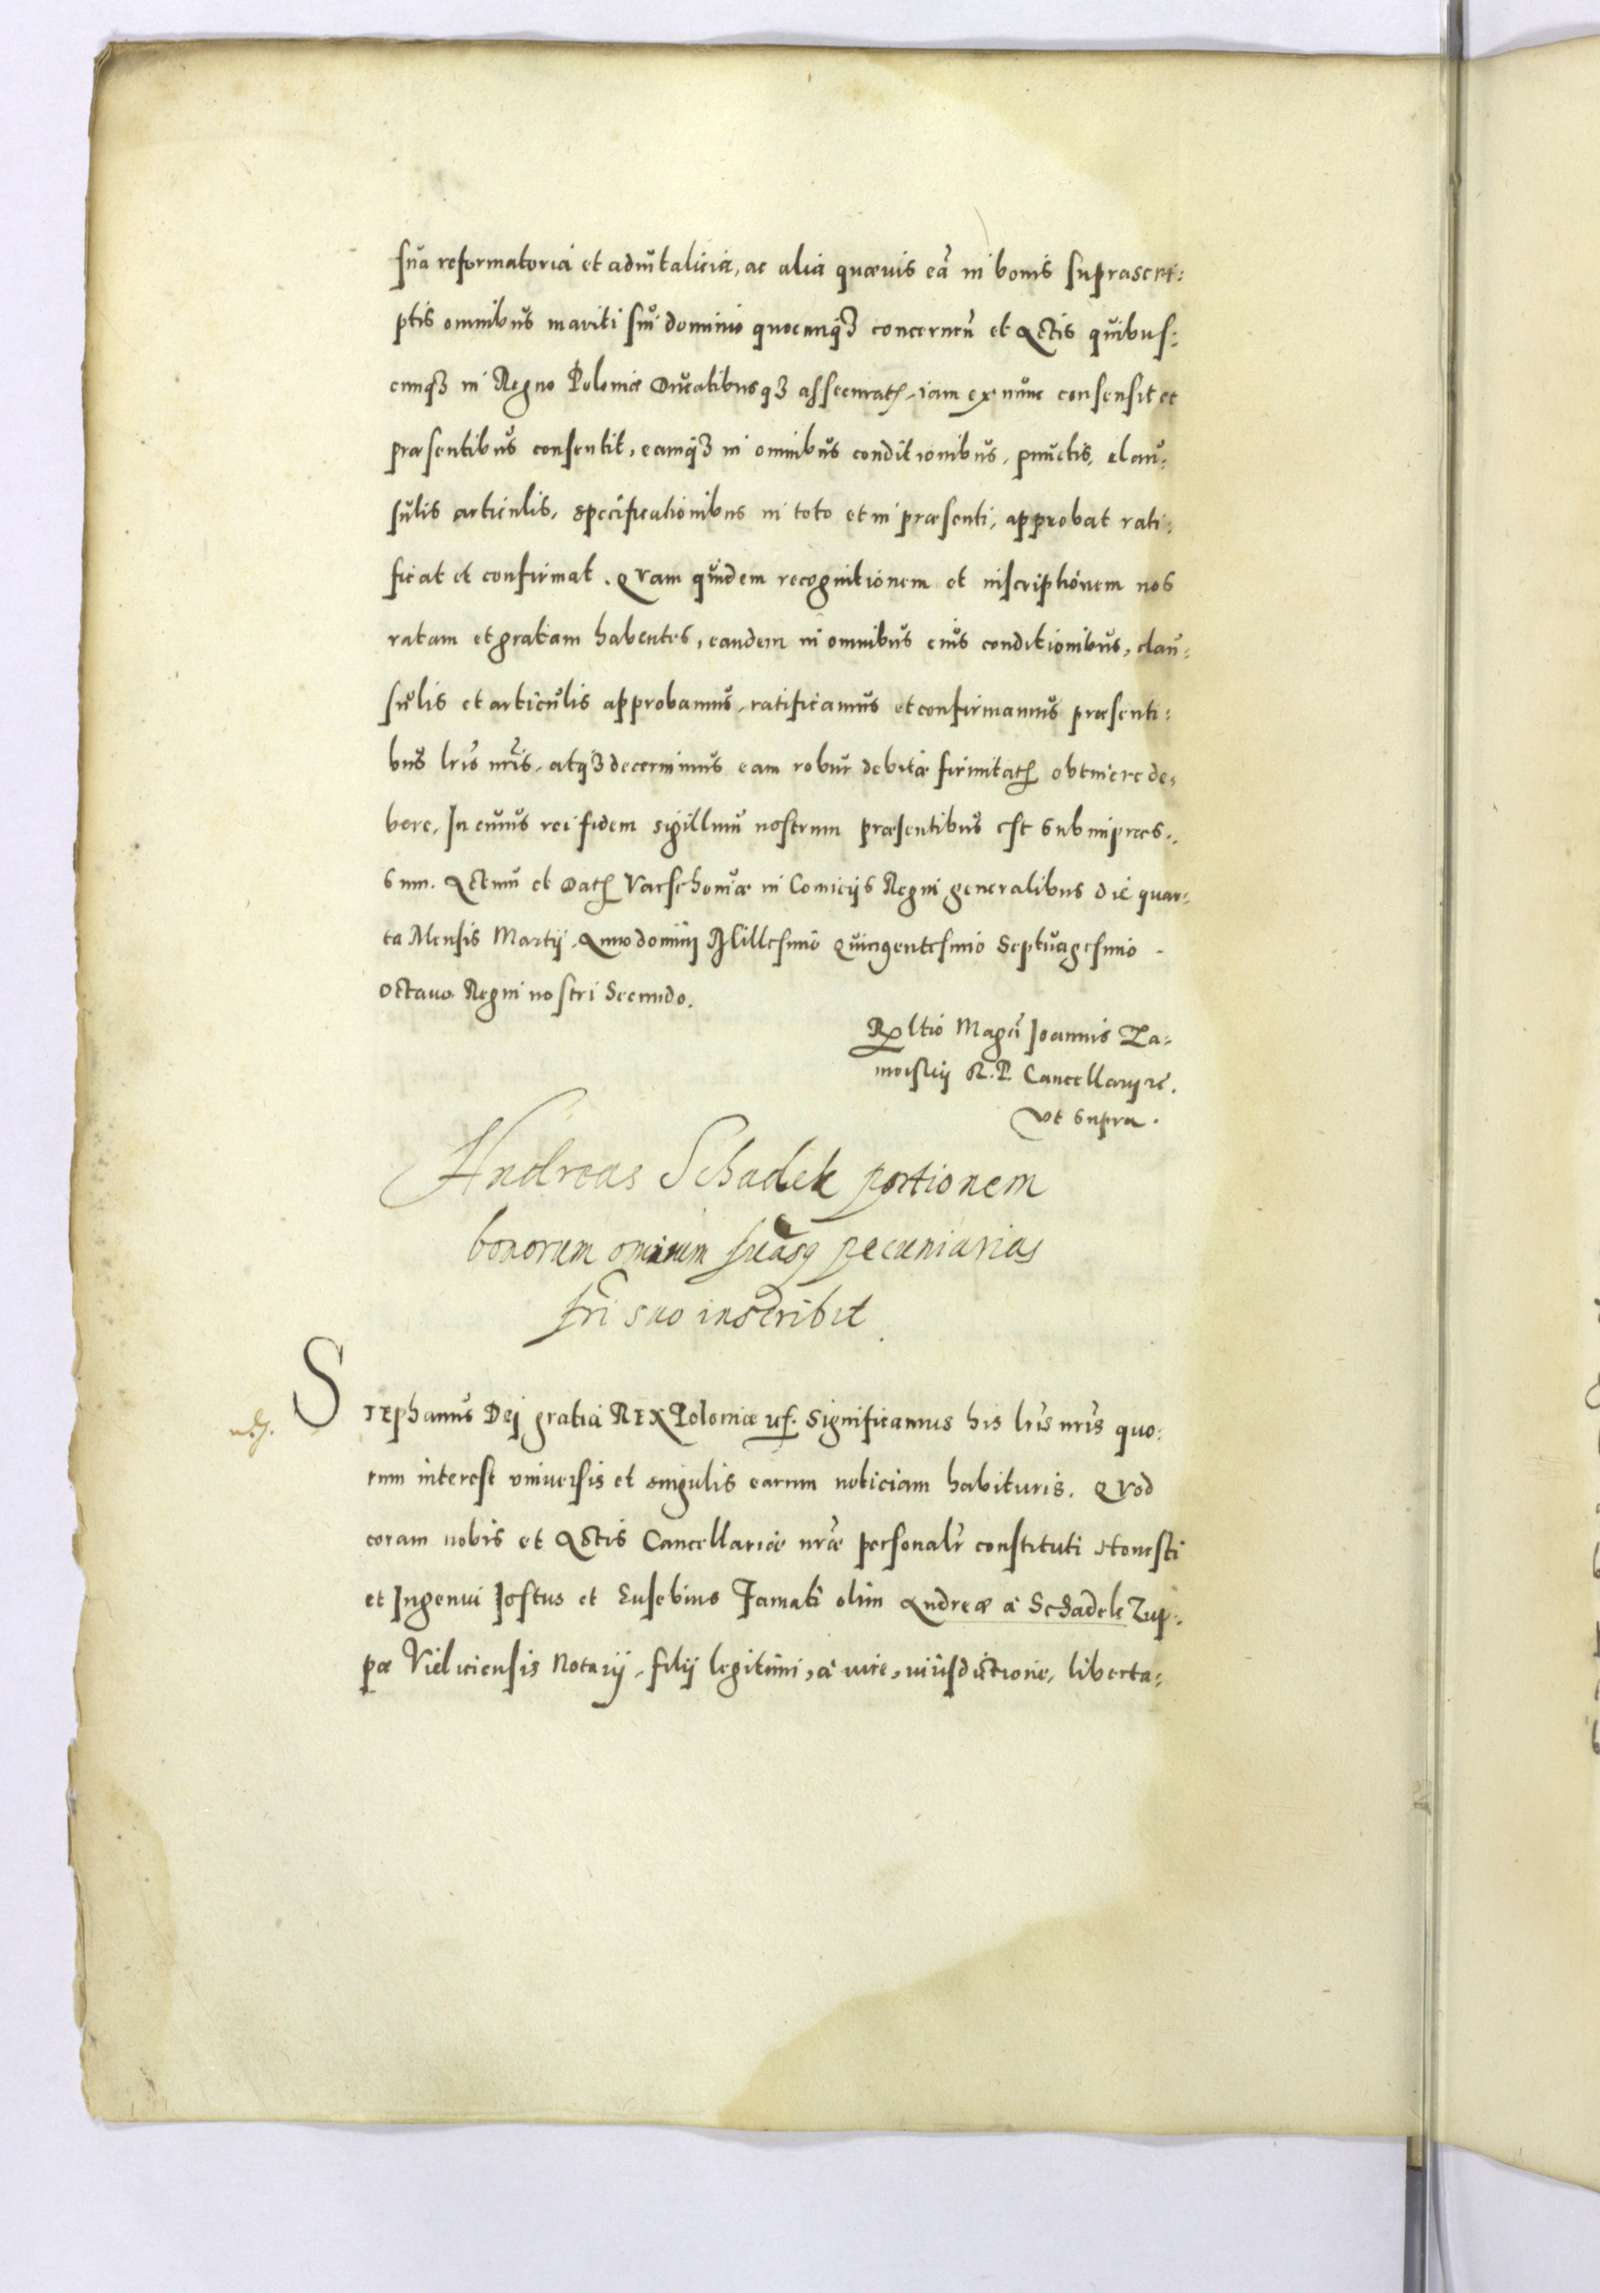 sua reformatoria et aduitalicia, ac alia quævis eā in bonis suprascri:
ptis omnibus mariti sui dominio quocunq3 concernen̄ et Actis quibus:
cunq3 in Regno Poloniæ Ducatibusq3 assecurat, iam ex nunc consensit et
præsentibus consentit, eamq3 in omnibus conditionibus, punctis, clau:
sulis articulis, specificationibus in toto et in præsenti, approbat rati:
ficat et confirmat. Quam quidem recognitionem et inscriptionem nos
ratam et gratam habentes, eandem in omnibus eius conditionibus, clau:
sulis et articulis approbamus, ratificamus et confirmamus præsenti:
bus lrīs nrīs, atq3 decernimus eam robur debitæ firmitat obtinere de:
bere, In cuius rei fidem sigillum nostrum præsentibus est subimpres:
sum. Actum et Dat Varschoviæ in Comicijs Regni generalibus die quar:
ta Mensis Martij Anno domini Millesimo Quingentesimo Septuagesimo
octauo Regni nostri Secundo.
Rltio Magci Joannis Za:
moiscij R. P. Cancellarij rē.
vt supra.
Andreas Schadek portionem
bonorum omnium suasq pecuniarias
fri suo inscribit
Stephanus Dei gratia REX Poloniæ Significamus his lrīs nrīs quo:
rum interest vniuersis et singulis earum noticiam habituris. Quod
coram nobis et Actis Cancellariæ nrǣ personalr̄ constituti Honesti
et Ingenui Jostus et Eusebius Famati olim Andreæ à Schadek Zup:
pæ Vieliciensis Notarij, filij legitimi, à iure, iurisdictione, liberta: